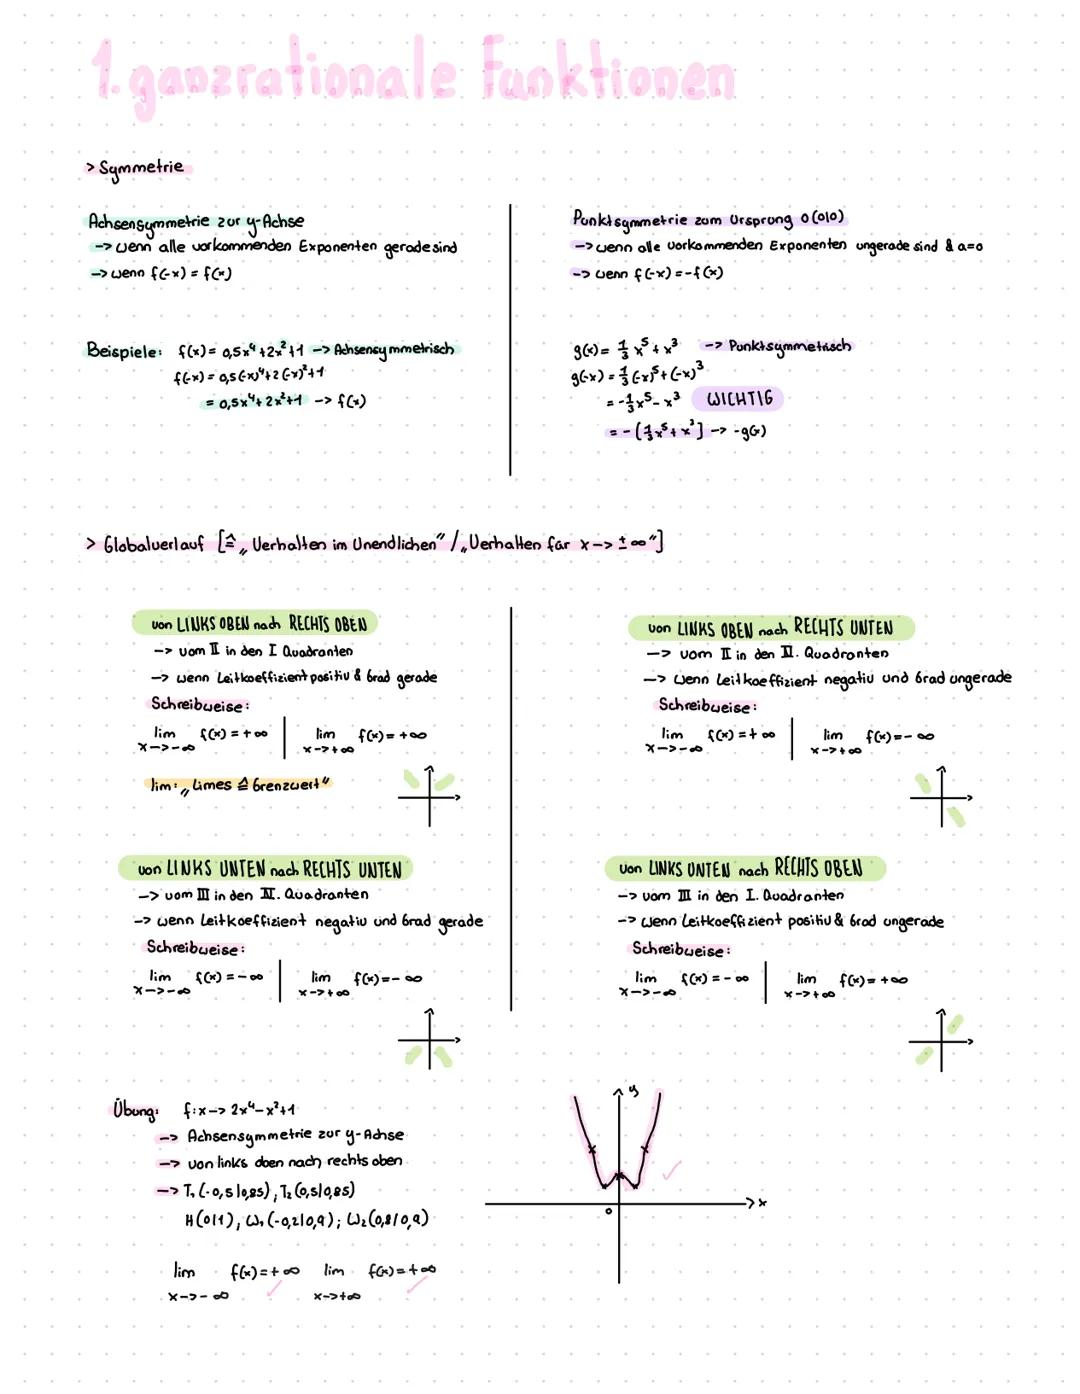 1. ganzrationale Funktionen
> Symmetrie
Achsensymmetrie zur y-Achse
-> wenn alle vorkommenden Exponenten gerade sind
-> wenn f(-x) = f(x)
Beispiele: f(x) = 0,5x⁴+2x²+1 -> Achsensymmetrisch
f(-x) = 0,5(-x)⁴+2(-x)²+1
= 0,5x⁴+2x²+1 -> f(x)
Punktsymmetrie zum Ursprung O(0|0)
-> wenn alle vorkommenden Exponenten ungerade sind & a=0
-> wenn f(-x) = -f(x)
g(x) = 1/3 x⁵ + x³ -> Punktsymmetrisch
g(-x) = 1/3 (-x)⁵ + (-x)³
= -1/3 x⁵ - x³ WICHTIG
= - [1/3 x⁵ + x³] -> -g(x)
> Globalverlauf [≙ „Verhalten im Unendlichen" / „Verhalten für x -> ±∞"]
von LINKS OBEN nach RECHTS OBEN
-> vom II in den I Quadranten
-> wenn Leitkoeffizient positiv & Grad gerade
Schreibweise:
lim f(x) = +∞ | lim f(x) = +∞
x->-∞ x->+∞
lim: „Limes ≙ Grenzwert"
von LINKS OBEN nach RECHTS UNTEN
-> vom II in den IV. Quadranten
-> wenn Leitkoeffizient negativ und Grad ungerade
Schreibweise:
lim f(x) = +∞ | lim f(x) = -∞
x->-∞ x->+∞
von LINKS UNTEN nach RECHTS UNTEN
-> vom III in den IV. Quadranten
-> wenn Leitkoeffizient negativ und Grad gerade
Schreibweise:
lim f(x) = -∞ | lim f(x) = -∞
x->-∞ x->+∞
von LINKS UNTEN nach RECHTS OBEN
-> vom III in den I. Quadranten
-> wenn Leitkoeffizient positiv & Grad ungerade
Schreibweise:
lim f(x) = -∞ | lim f(x) = +∞
x->-∞ x->+∞
Übung: f: x -> 2x⁴-x²+1
-> Achsensymmetrie zur y-Achse
-> von links oben nach rechts oben
-> T₁(-0,5|0,85), T₂(0,5|0,85)
H(0|1); W₁(-0,2|0,9); W₂(0,8|0,9)
lim f(x) = +∞ lim f(x) = +∞
x->-∞ x->+∞
y
x
0